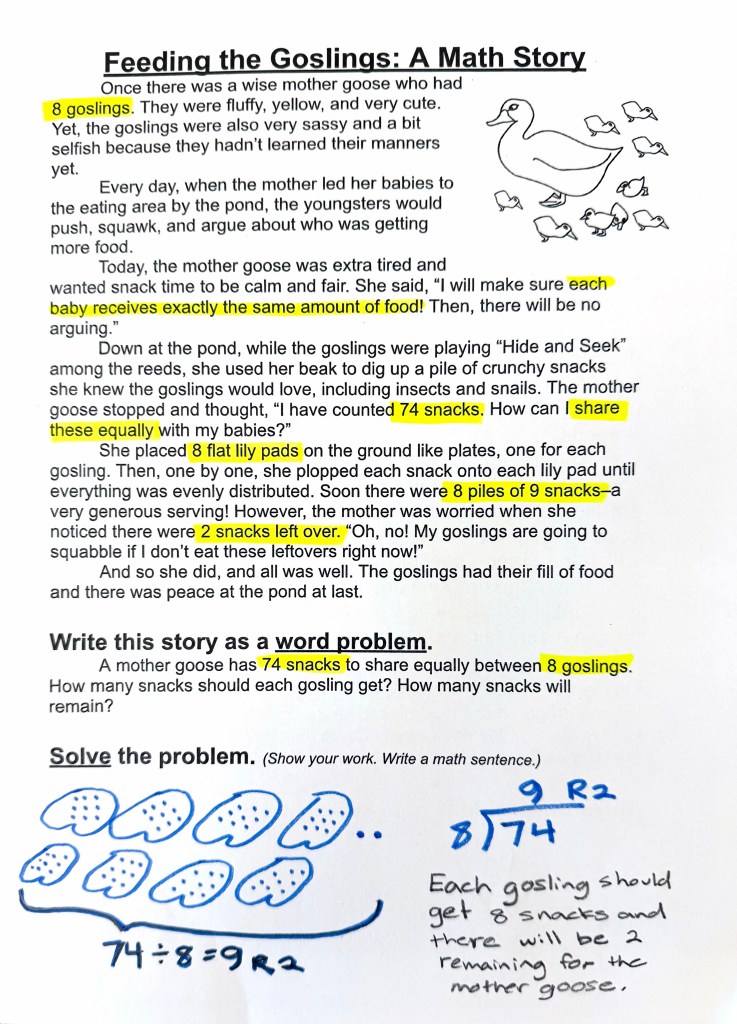 Feeding the Goslings: A Math Story
Once there was a wise mother goose who had
8 goslings. They were fluffy, yellow, and very cute.
Yet, the goslings were also very sassy and a bit
selfish because they hadn't learned their manners
yet.
Every day, when the mother led her babies to
the eating area by the pond, the youngsters would
push, squawk, and argue about who was getting
more food.
Today, the mother goose was extra tired and
wanted snack time to be calm and fair. She said, “I will make sure each
baby receives exactly the same amount of food! Then, there will be no
arguing.”
Down at the pond, while the goslings were playing “Hide and Seek”
among the reeds, she used her beak to dig up a pile of crunchy snacks
she knew the goslings would love, including insects and snails. The mother
goose stopped and thought, “I have counted 74 snacks. How can I share
these equally with my babies?”
She placed 8 flat lily pads on the ground like plates, one for each
gosling. Then, one by one, she plopped each snack onto each lily pad until
everything was evenly distributed. Soon there were 8 piles of 9 snacks–a
very generous serving! However, the mother was worried when she
noticed there were 2 snacks left over. “Oh, no! My goslings are going to
squabble if I don't eat these leftovers right now!”
And so she did, and all was well. The goslings had their fill of food
and there was peace at the pond at last.
Write this story as a word problem.
A mother goose has 74 snacks to share equally between 8 goslings.
How many snacks should each gosling get? How many snacks will
remain?
Solve the problem. (Show your work. Write a math sentence.)
74÷8=9 R2
9 R2
8)74
Each gosling should
get 8 snacks and
there will be 2
remaining for the
mother goose.